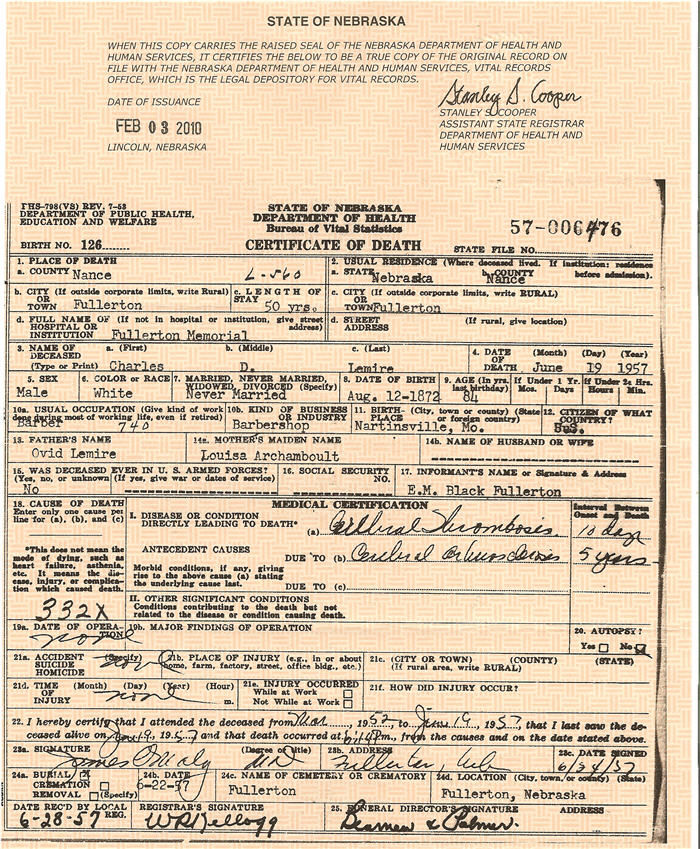 STATE OF NEBRASKA
WHEN THIS COPY CARRIES THE RAISED SEAL OF THE NEBRASKA DEPARTMENT OF HEALTH AND
HUMAN SERVICES, IT CERTIFIES THE BELOW TO BE A TRUE COPY OF THE ORIGINAL RECORD ON
FILE WITH THE NEBRASKA DEPARTMENT OF HEALTH AND HUMAN SERVICES, VITAL RECORDS
OFFICE, WHICH IS THE LEGAL DEPOSITORY FOR VITAL RECORDS.
DATE OF ISSUANCE
FEB 03 2010
LINCOLN, NEBRASKA
Stanley S. Cooper
STANLEY S. COOPER
ASSISTANT STATE REGISTRAR
DEPARTMENT OF HEALTH AND
HUMAN SERVICES
PHS-798(VS) REV. 7-53
DEPARTMENT OF PUBLIC HEALTH,
EDUCATION AND WELFARE
STATE OF NEBRASKA
DEPARTMENT OF HEALTH
Bureau of Vital Statistics
57-006476
BIRTH NO. 126
CERTIFICATE OF DEATH
STATE FILE NO.
1. PLACE OF DEATH
a. COUNTY Nance
L-560
2. USUAL RESIDENCE (Where deceased lived. If institution: residence before admission).
a. STATE Nebraska
b. COUNTY Nance
b. CITY (If outside corporate limits, write Rural) OR TOWN Fullerton
c. LENGTH OF STAY 50 yrs.
c. CITY (If outside corporate limits, write RURAL) OR TOWN Fullerton
d. FULL NAME OF (If not in hospital or institution, give street address) HOSPITAL OR INSTITUTION Fullerton Memorial
d. STREET ADDRESS (If rural, give location)
3. NAME OF DECEASED (Type or Print)
a. (First) Charles
b. (Middle) D.
c. (Last) Lemire
4. DATE OF DEATH (Month) (Day) (Year) June 19 1957
5. SEX Male
6. COLOR OR RACE White
7. MARRIED, NEVER MARRIED, WIDOWED, DIVORCED (Specify) Never Married
8. DATE OF BIRTH Aug. 12-1872
9. AGE (In yrs. last birthday) 84
If Under 1 Yr. Mos. Days
If Under 24 Hrs. Hours Min.
10a. USUAL OCCUPATION (Give kind of work done during most of working life, even if retired) Barber 740
10b. KIND OF BUSINESS OR INDUSTRY Barbershop
11. BIRTH- (City, town or county) (State or foreign country) Martinsville, Mo.
12. CITIZEN OF WHAT COUNTRY?
13. FATHER'S NAME Ovid Lemire
14a. MOTHER'S MAIDEN NAME Louisa Archamboult
14b. NAME OF HUSBAND OR WIFE
15. WAS DECEASED EVER IN U. S. ARMED FORCES? (Yes, no, or unknown) (If yes, give war or dates of service) No
16. SOCIAL SECURITY NO.
17. INFORMANT'S NAME or Signature & Address E.M. Black Fullerton
18. CAUSE OF DEATH
Enter only one cause per line for (a), (b), and (c)
MEDICAL CERTIFICATION
Interval Between Onset and Death
I. DISEASE OR CONDITION DIRECTLY LEADING TO DEATH* (a) Cerebral Thrombosis. 10 days
*This does not mean the mode of dying, such as heart failure, asthenia, etc. It means the disease, injury, or complication which caused death.
ANTECEDENT CAUSES
DUE TO (b) Cerebral 5 years
Morbid conditions, if any, giving rise to the above cause (a) stating the underlying cause last.
DUE TO (c)
332X
II. OTHER SIGNIFICANT CONDITIONS
Conditions contributing to the death but not related to the disease or condition causing death.
19a. DATE OF OPERATION none
19b. MAJOR FINDINGS OF OPERATION
20. AUTOPSY?
Yes No
21a. ACCIDENT SUICIDE HOMICIDE (Specify) none
21b. PLACE OF INJURY (e.g., in or about home, farm, factory, street, office bldg., etc.)
21c. (CITY OR TOWN) (COUNTY) (STATE)
(If rural area, write RURAL)
21d. TIME OF INJURY (Month) (Day) (Year) (Hour) m. none
21e. INJURY OCCURRED
While at Work
Not While at Work
21f. HOW DID INJURY OCCUR?
22. I hereby certify that I attended the deceased from Mar, 1952, to June 19, 1957, that I last saw the deceased alive on June 19, 1957 and that death occurred at m., from the causes and on the date stated above.
23a. SIGNATURE (Degree or title) MD
23b. ADDRESS Fullerton, Neb
23c. DATE SIGNED 6/24/57
24a. BURIAL X
CREMATION
REMOVAL (Specify)
24b. DATE 6-22-57
24c. NAME OF CEMETERY OR CREMATORY Fullerton
24d. LOCATION (City, town, or county) (State) Fullerton, Nebraska
DATE REC'D BY LOCAL REG. 6-28-57
REGISTRAR'S SIGNATURE WR Kellogg
25. FUNERAL DIRECTOR'S SIGNATURE ADDRESS
& Palmer.